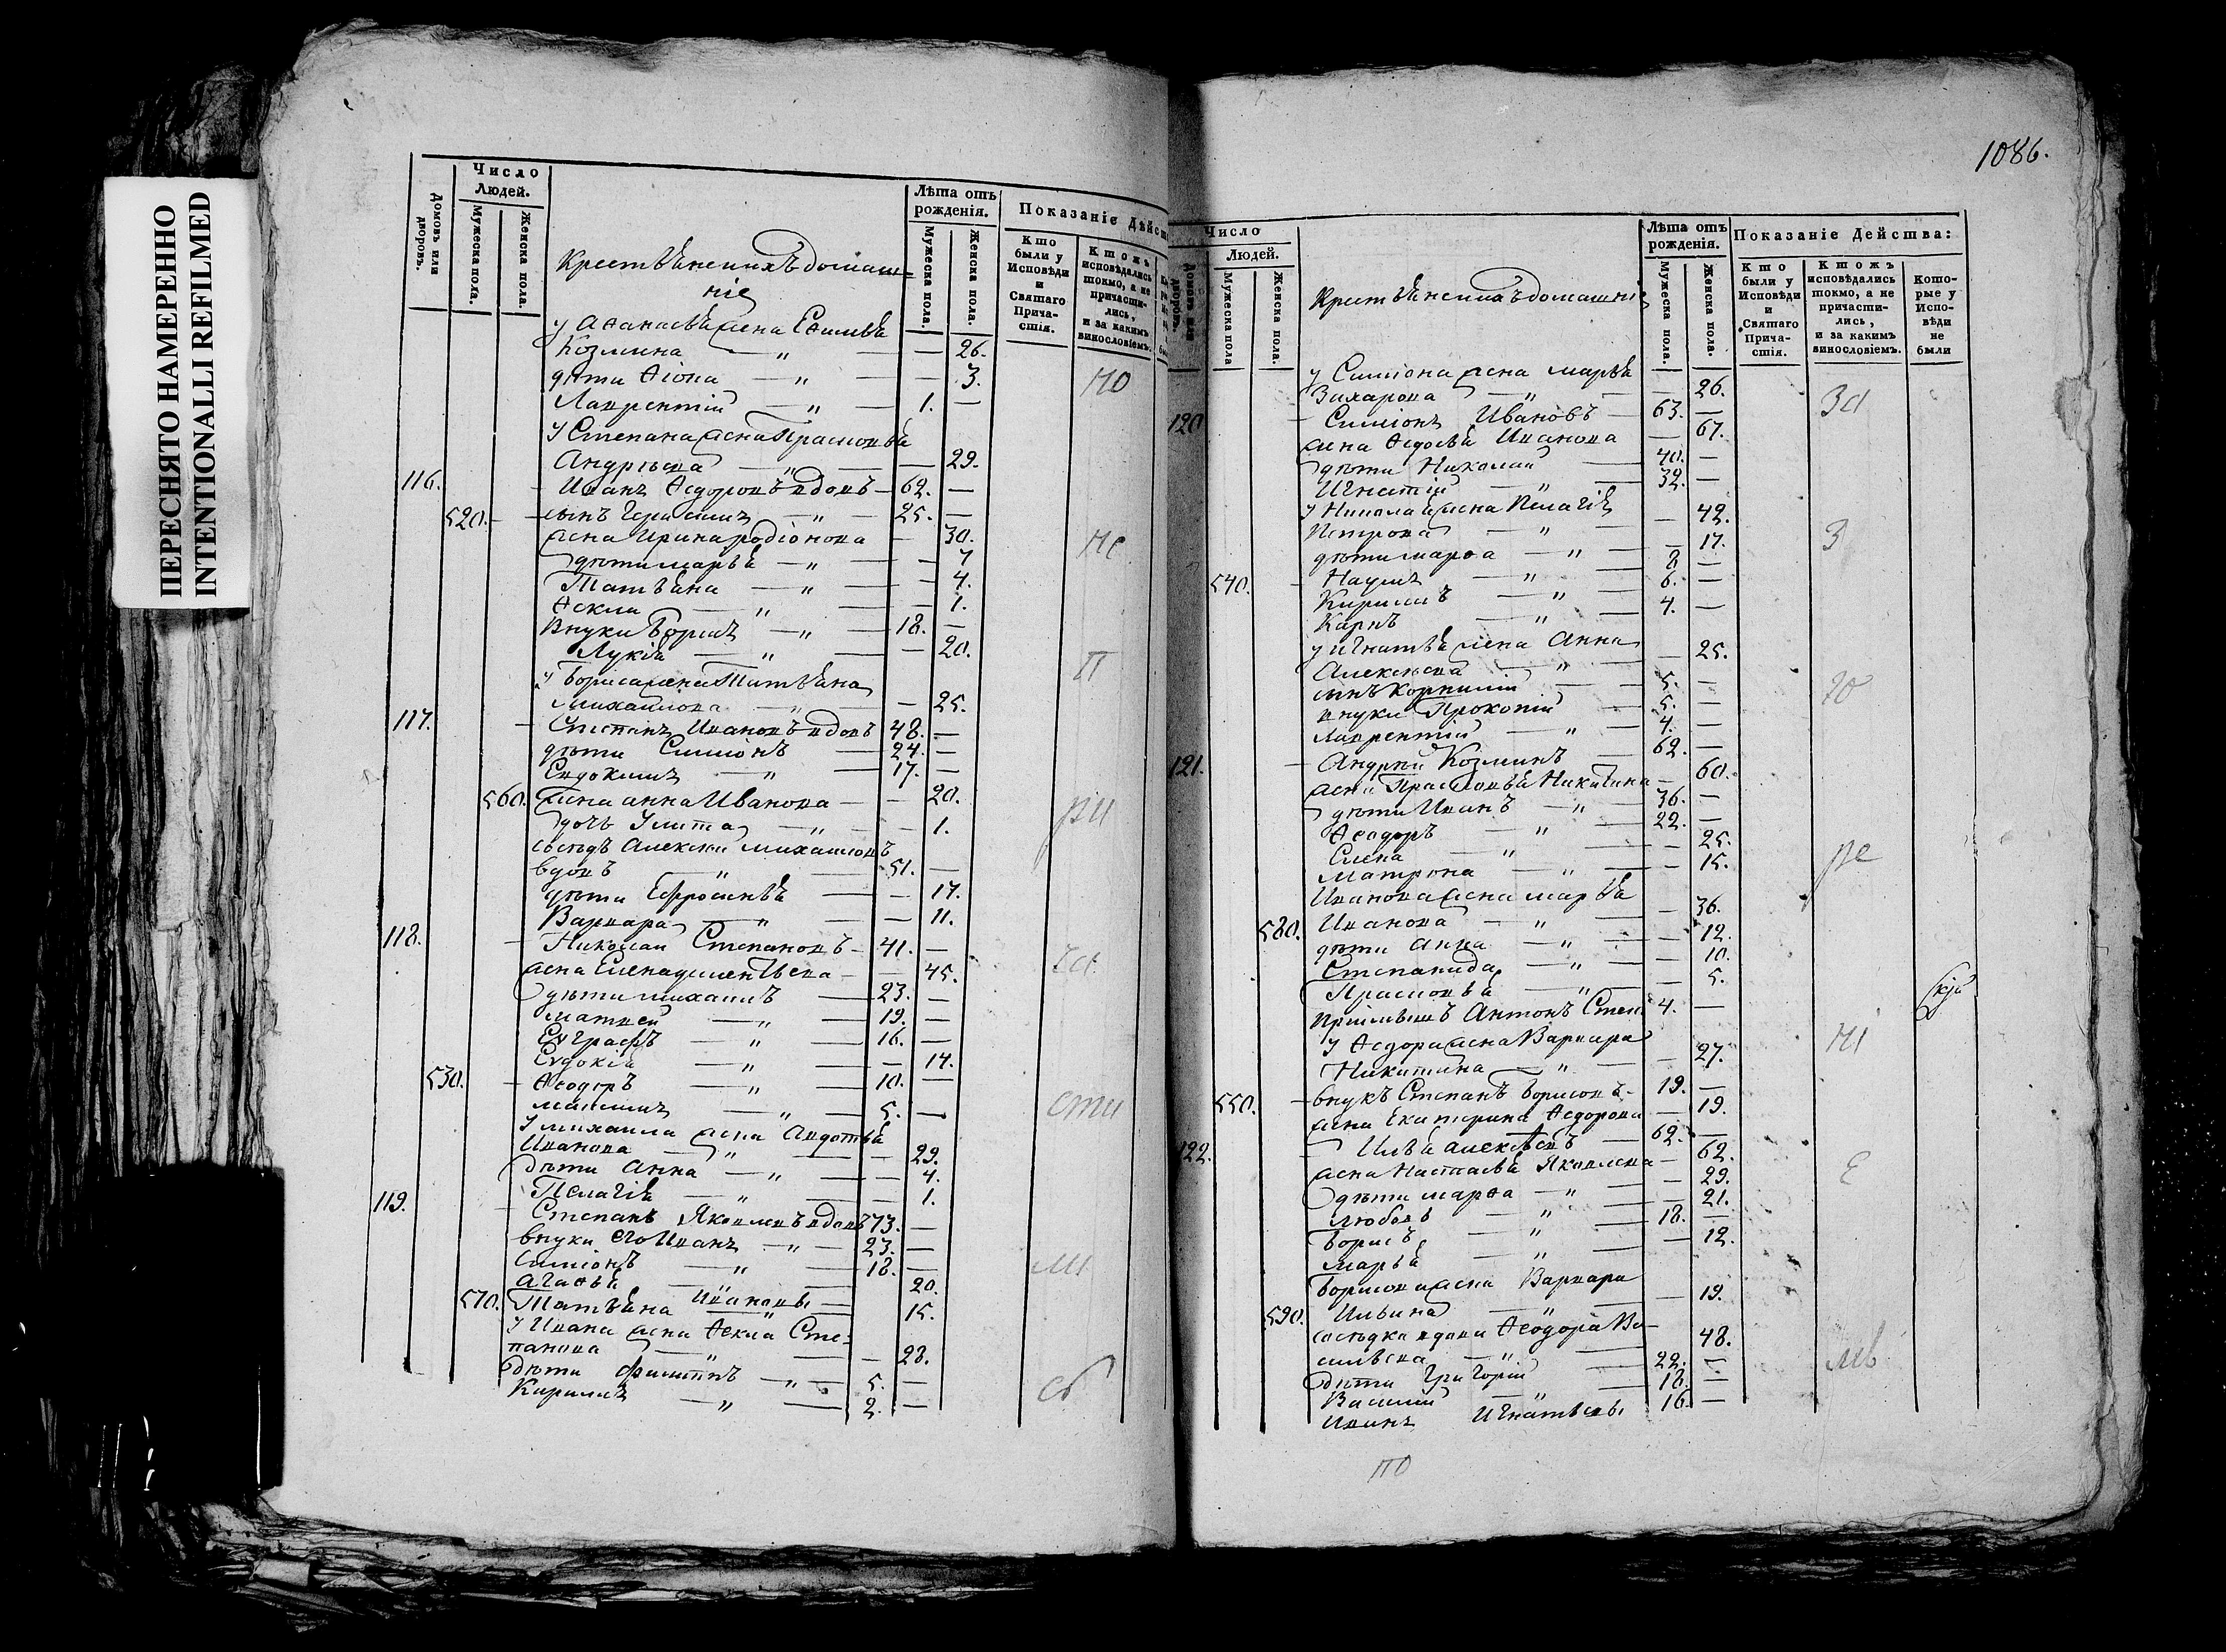 ПЕРЕСНЯТО НАМЕРЕННО
INTENTIONALLI REFILMED
Домовъ или дворовъ.
Число Людей.
Мужеска пола.
Женска пола.
Крестьянскихъ домаш=
ніе
Лѣта отъ рожденія.
Мужеска пола.
Женска пола.
Показаніе Дѣйст
Кто были у Исповѣди и Святаго Причастія.
Ктожъ исповѣдались токмо, а не причастились, и за какимъ винословіемъ.
у Аѳанасья жена Софья
Козмина — „ — — 26.
дѣти Ѳіона — „ — — 3.
Лаврентій — „ — 1. —
у Степана жена Прасковья
Андрѣева — „ — — 29.
116. Иванъ Ѳедоровъ вдовъ — 62. —
520. сынъ Герасимъ — „ — 25. —
жена Ирина родіонова — 30.
дѣти марья — „ — — 7
Татьяна — „ — — 4.
Ѳекла — „ — — 1.
Внуки Борисъ — „ — 18. —
Лукія — „ — — 20.
у Бориса жена Татьяна
михайлова — „ — — 25.
117. Степанъ Ивановъ вдовъ 48. —
дѣти Симіонъ — 24. —
Евдокимъ — „ — 17. —
560. жена анна Иванова — — 20.
дочь Улита — „ — — 1.
сосѣдъ Алексѣй михайловъ
вдовъ — „ — 51. —
дѣти Ефросинья — — 17.
Варвара — „ — — 11.
118. Николай Степановъ — 41. —
жена Елена дементьева — — 45.
дѣти михаилъ — 23. —
матвей — „ — 19. —
Евграфъ — „ — 16. —
Евдокія — „ — — 14.
530. Ѳеодоръ — „ — 10. —
максимъ — „ — 5. —
у михаила жена Авдотья
Иванова — „ — — 29.
дѣти Анна — „ — — 4.
Пелагія — „ — — 1.
119. Степанъ Яковлевъ вдовъ 73. —
внуки его Иванъ — „ — 23. —
Симіонъ — „ — 18. —
Агаѳья — „ — 20.
570. Татьяна Ивановы — 15.
у Ивана жена Ѳекла Сте=
панова — „ — — 28.
дѣти Филиппъ — „ — 5. —
Кирилъ — „ — 2. —
но
не
п
ри
ча
сти
ли
сь
1086.
Число Людей.
Мужеска пола
Женска пола.
Крестьянскихъ домашніе
Лѣта отъ рожденія.
Мужеска пола.
Женска пола.
Показаніе Действа:
Кто были у Исповѣди и Святаго Причастія.
Ктожъ исповѣдались токмо, а не причастились, и за какимъ винословіемъ.
Которые у Исповѣди не были
у Симіона жена марья
Захарова — „ — — 26.
120 Симіонъ Ивановъ — 63. —
жена Ѳедосья Иванова — 67.
дѣти Николай — 40. —
Игнатій — „ — 32. —
у Николая жена Пелагія
Петрова — „ — 42.
дѣти марѳа — „ — — 17.
540. Наумъ — „ — 8 —
Кирилъ — „ — 6. —
Карпъ — „ — 4. —
у игнатья жена Анна
Алексѣева — „ — 25.
сынъ Корнилій — 5. —
внуки Прокопій — 5. —
Лаврентій — „ — 4. —
121. Андрей Козминъ — 62. —
жена Прасковья Никитина — 60.
дѣти Иванъ — „ 36. —
Ѳеодоръ — „ — 22. —
Елена — „ — — 25.
Матрона — „ — — 15.
Иванова жена марья
580. Иванова — „ — 36.
дѣти Анна — „ — — 12.
Степанида — „ — — 10.
Прасковья — „ — — 5.
Пріимышъ Антонъ Степ. 4. —
у Ѳедора жена Варвара
Никитина — „ — — 27.
550. внукъ Степанъ Борисовъ — 19. —
жена Екатерина Ѳедорова — 19.
122. Илья алексѣевъ — 62. —
жена Настасья Яковлева — 62.
дѣти марѳа — „ — — 29.
любовь — „ — — 21.
Борисъ — „ — 18. —
марья — „ — — 12.
Борисова жена Варвара
590. Ильина — „ — 19.
сосѣдка вдова Ѳеодора Ва=
сильева — „ — 48.
дѣти Григорій — 22. —
Василій — „ — 18. —
Иванъ Игнатьевы 16. —
за
З
ю
ре
Е
скій
по